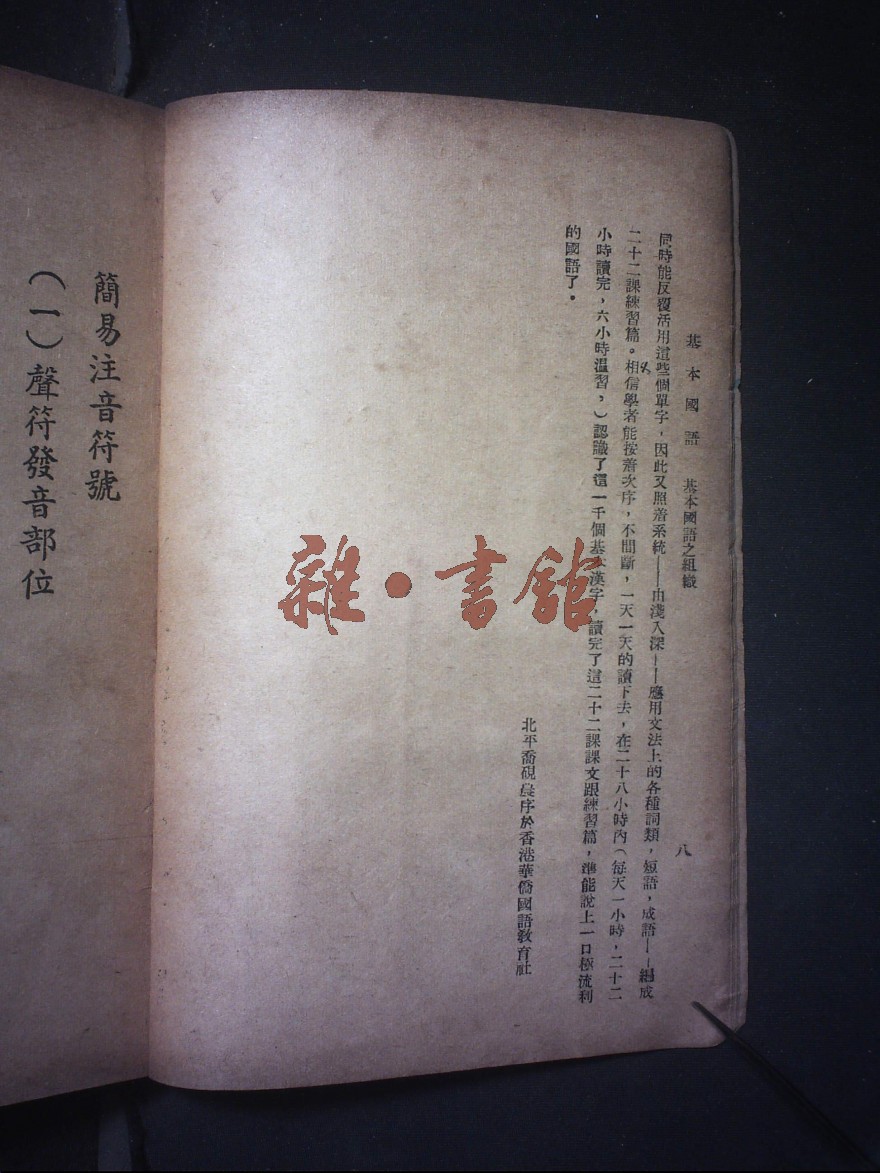 基本國語　基本國語之組織　八
同時能反覆活用這些個單字，因此又照着系統——由淺入深——應用文法上的各種詞類，短語，成語——編成
二十二課練習篇。相信學者能按着次序，不間斷，一天一天的讀下去，在二十八小時內（每天一小時，二十二
小時讀完，六小時溫習，）認識了這一千個基本漢字，讀完了這二十二課課文跟練習篇，準能說上一口極流利
的國語了。
北平喬硯農序於香港華僑國語敎育社
簡易注音符號
（一）聲符發音部位
雜·書館